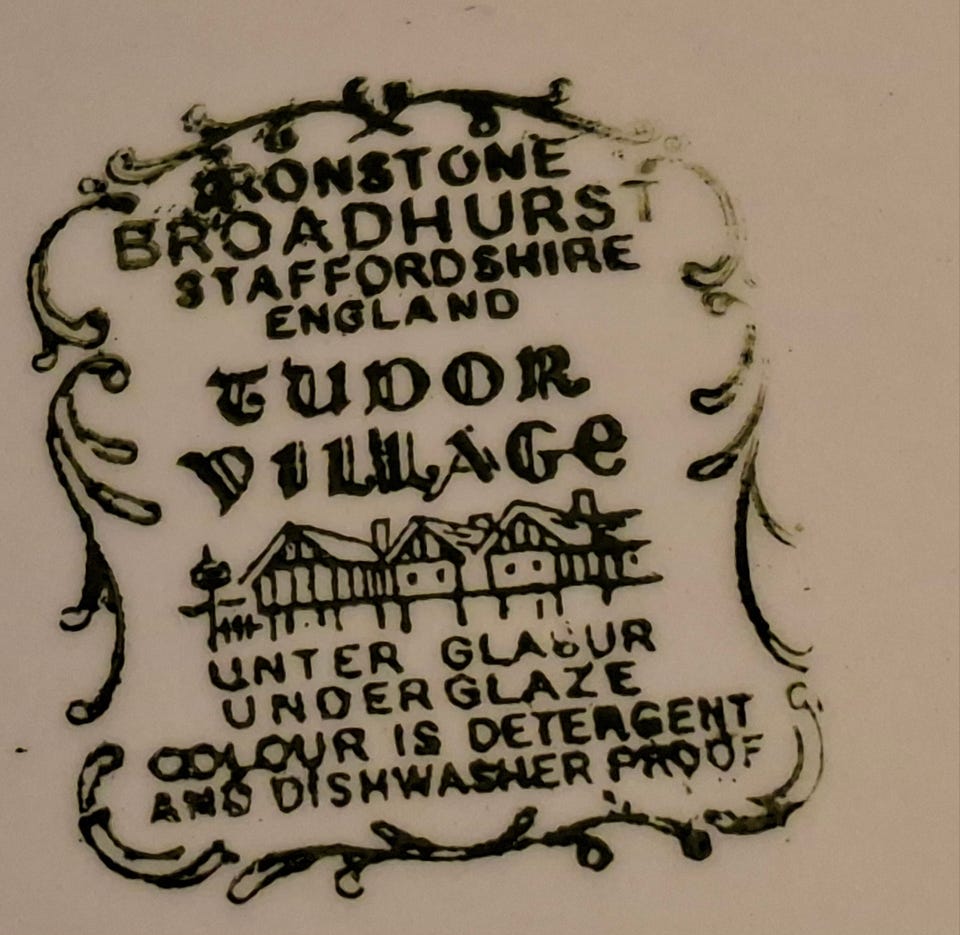 IRONSTONE
BROADHURST
STAFFORDSHIRE
ENGLAND
TUDOR
VILLAGE
UNTER GLASUR
UNDERGLAZE
COLOUR IS DETERGENT
AND DISHWASHER PROOF